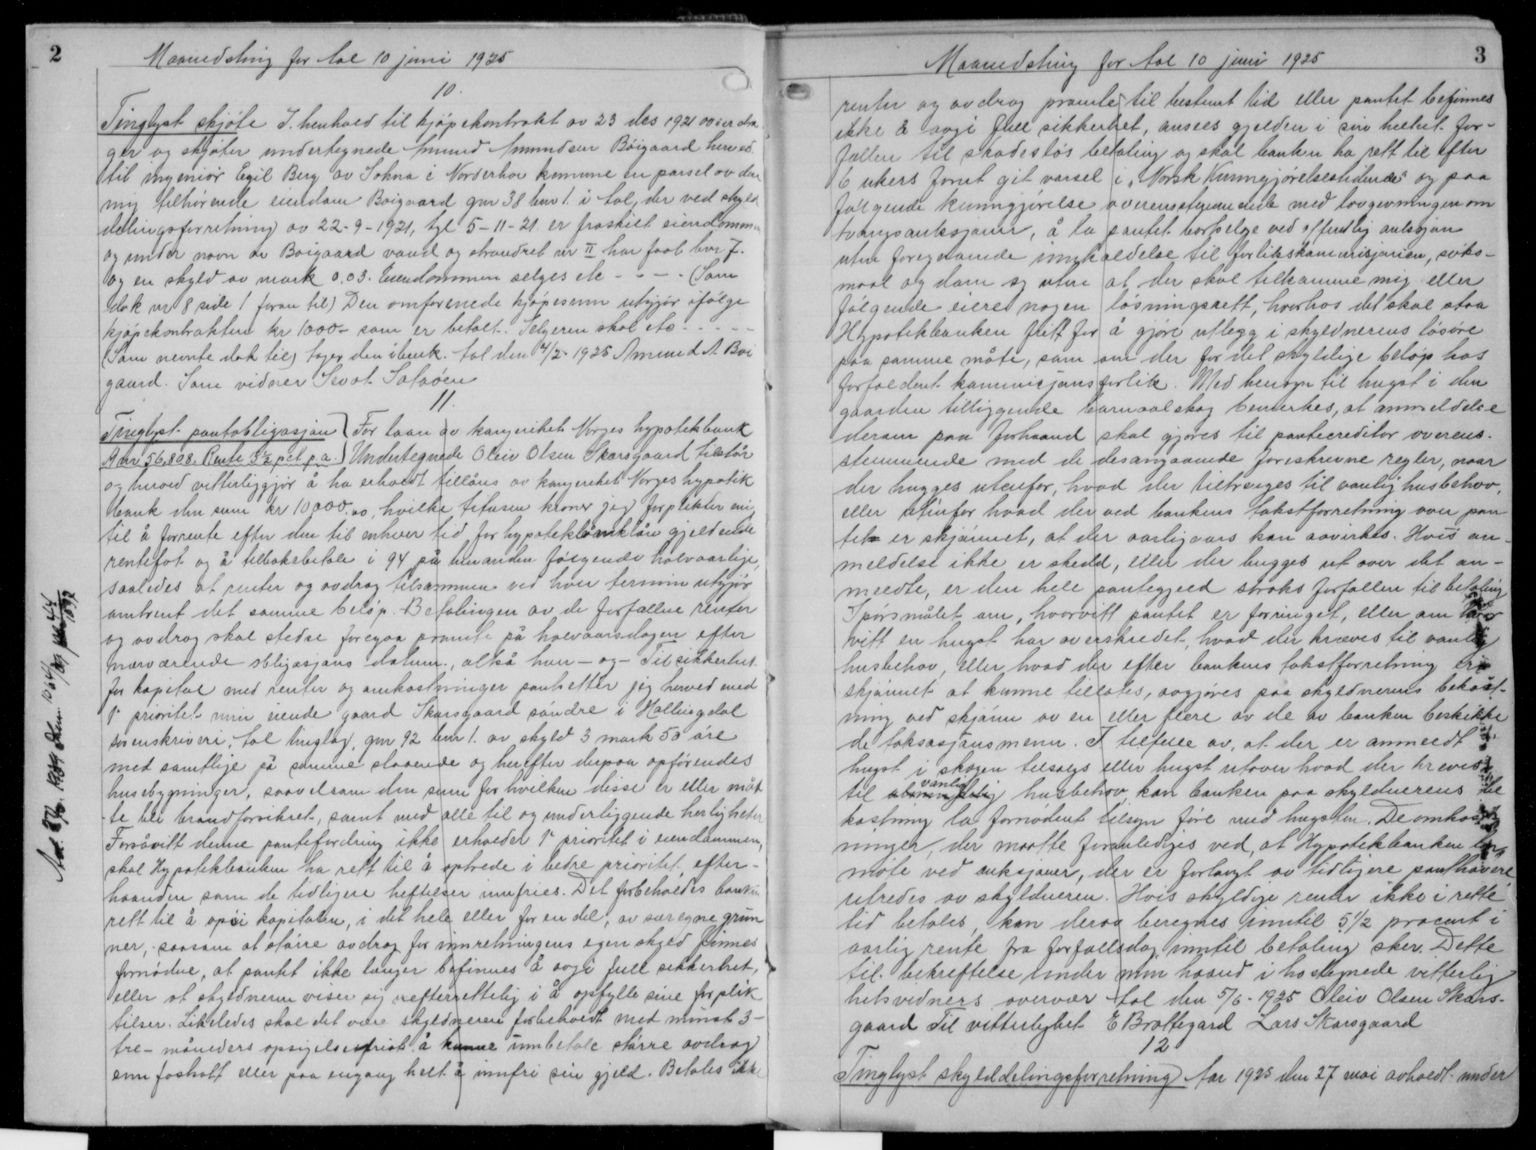 2
Maanedsting for Aal 10 juni 1925
10.
Tinglyst skjøte I henhold til kjøpekontrakt av 23 des 1921 overdra-
ger og skjøter undertegnede Amund Amundsen Böigaard herved
til ingeniør Egil Berg av Sokna i Norderhov kommune en parsel av den
mig tilhørende eiendom Böigaard gnr 38 bnr 1. i Aal, der ved skyld
delingsforretning av 22-9-1921, tgl 5-11-21 er fraskilt eiendommen
og under navn av Boigaard vand og strandret nr II har faat bnr 7.
og en skyld av mark 0.03. Eiendommen selges etc - - - - (Som
dok nr 8 side 1 foran til) Den omforenede kjøpesum utgjør ifølge
kjøpekontrakten kr 1000- som er betalt. Selgeren skal etc - - - - -
(Som nevnte dok til) tages den i bruk. Aal den 4/2-1925 Amund A. Boi
gaard. Som vidner Sevat
11.
Tinglyst pantobligasjon
A nr 56,808. Rente 5½ pct p.a.
For laan av kongeriket Norges hypotekbank
Undertegnede Oleiv Olsen Skarsgaard tilstår
og herved vitterliggjør å ha erholdt tillåns av kongeriket Norges hypotik
bank den sum kr 10,000.00, hvilke titusen kroner jeg forplikter mig
til å forrente efter den til enhver tid for hypotekbanklån gjeldende
rentefot og å tilbakebetale i 94 på hinanden følgende halvaarlige,
saaledes at renter og avdrag tilsammen ved hver termin utgjør
omtrent det samme beløp. Betalingen av de forfallne renter
og avdrag skal stedse foregaa promte på halvaarsdagen efter
nærværende obligasjons datum, altså hver - og - Til sikkerhet
for kapital med renter og omkostninger pantsetter jeg herved med
1' prioritet min eiende gaard Skarsgaard söndre i Hallingdal
sorenskriveri, Aal tinglag, gnr 92 bnr 1. av skyld 3 mark 53 öre
med samtlige på samme staaende og herefter derpaa opførendes
husebygninger, saavelsom den sum for hvilken disse er eller måt-
te bli brandforsikret, samt med alle til og underliggende herligheter
Forsåvitt denne pantefordring ikke erholder 1' prioritet i eiendommen,
skal Hypotekbanken ha rett til å optrede i bedre prioritet, efter-
haanden som de tidligere heftelser innfries. Det forbeholdes banken
rett til å opsi kapitalen, i det hele eller for en del, av særegne grun
ner, saasom at större avdrag for innretningens egen skyld finnes
fornødne, at pantet ikke længer befinnes å avgi full sikkerhet,
eller at skyldneren viser sig uefterrettelig i å opfylle sine forplik
telser. Likeledes skal det være skyldneren forbeholdt med minst 3-
tre- måneders opsigelsesfrist å kunne innbetale større avdrag
enn fastsatt eller paa engang helt å innfri sin gjeld. Betales ikke
3
Maanedsting for Aal 10 juni 1925
renter og avdrag promte til bestemt tid eller pantet befinnes
ikke å avgi full sikkerhet, ansees gjelden i sin helhet for-
fallen til skadesløs betaling og skal banken ha rett til efter
6 ukers forut git varsel i "Norsk Kunngjørelsestidende" og paa
følgende kunngjørelse overensstemmende med lovgivningen om
tvangsauksjoner, å la pantet bortselge ved offentlig auksjon
uten foregaaende innkaldelse til forlikskommisjonen, søks-
maal og dom og uten at der skal tilkomme mig eller
følgende eiere nogen løsningsrett, hvorhos det skal staa
Hypotekbanken fritt for å gjøre utlegg i skyldnerens løsøre
paa samme måte, som om der for det skyldige beløp has
forfaldent kommisjonsforlik. Med hensyn til hugst i den
gaarden tilliggende barnaalskog bemerkes, at anmeldelse
derom paa forhaand skal gjøres til pantecreditor overens-
stemmende med de desangaaende foreskrevne regler, naar
der hugges utenfor, hvad der tiltrenges til vanlig husbehov,
eller utenfor hvad der ved bankens takstforretning over pan
tet er skjønnet, at der aarligaars kan avvirkes. Hvis an-
meldelse ikke er skedd, eller der hugges ut over det an-
meldte, er den hele pantegjeld straks forfallen til betaling
Spørsmålet om, hvorvitt pantet er forringet, eller om hvor
vitt en hugst har overskredet, hvad der kræves til vanlig
husbehov, eller hvad der efter bankens takstforretning er
skjønnet at kunne tillates, avgjøres paa skyldnerens bekost-
ning ved skjønn av en eller flere av de av banken beskikke
de taksasjonsmenn. I tilfelle av, at der er anmeldt
hugst i skogen tilsalgs eller hugst utover hvad der kreves
til vanlig husbehov kan banken paa skyldnerens be
kostning la fornødent tilsyn føre med hugsten. De omkost
ninger, der maatte foranlediges ved, at Hypotekbanken lar
møte ved auksjoner, der er forlangt av tidligere panthavere
utredes av skyldneren. Hvis skyldige renter ikke i rette
tid betales, kan derav beregnes inntil 5 1/2 procent i
aarlig rente fra forfallsdag inntil betaling sker. Dette
til bekreftelse under min haand i hostegnede vitterlig
hetsvidners overvær Aal den 5/6-1925 Oleiv Olsen Skars-
gaard Til vitterlighet E Brattegard Lars Skarsgaard
12
Tinglyst skylddelingsforretning Aar 1925 den 27 mai avholdt under